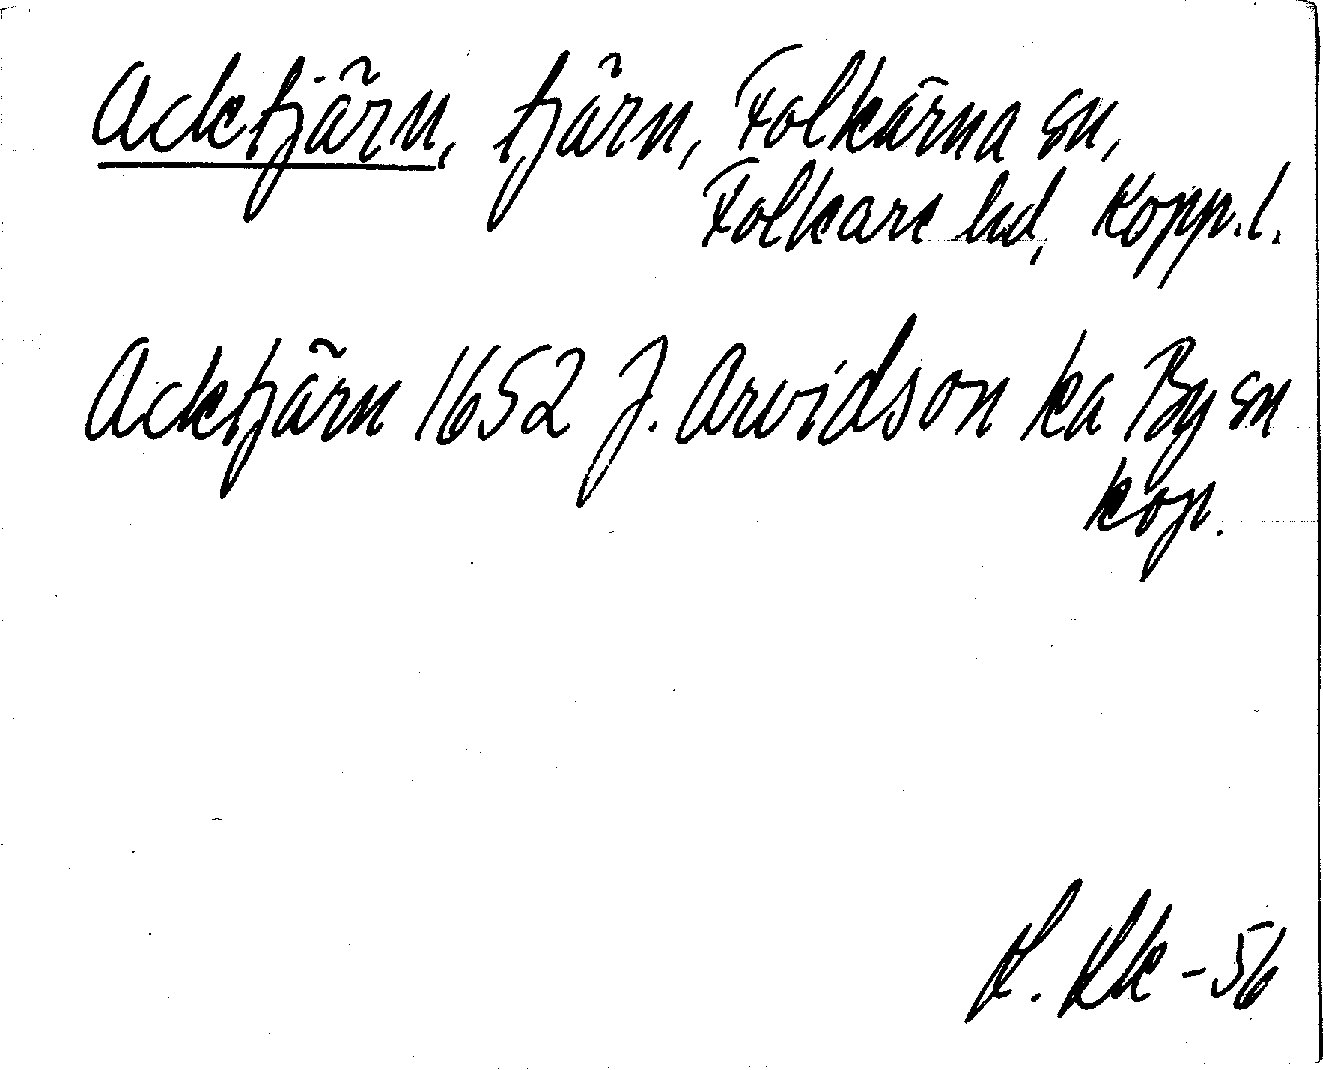 Acktjärn, tjärn, Folkärna sn,
Folkare hd, Kopp.l.
Acktjärn 1652 J. Arvidson ka By sn
kop.
-56